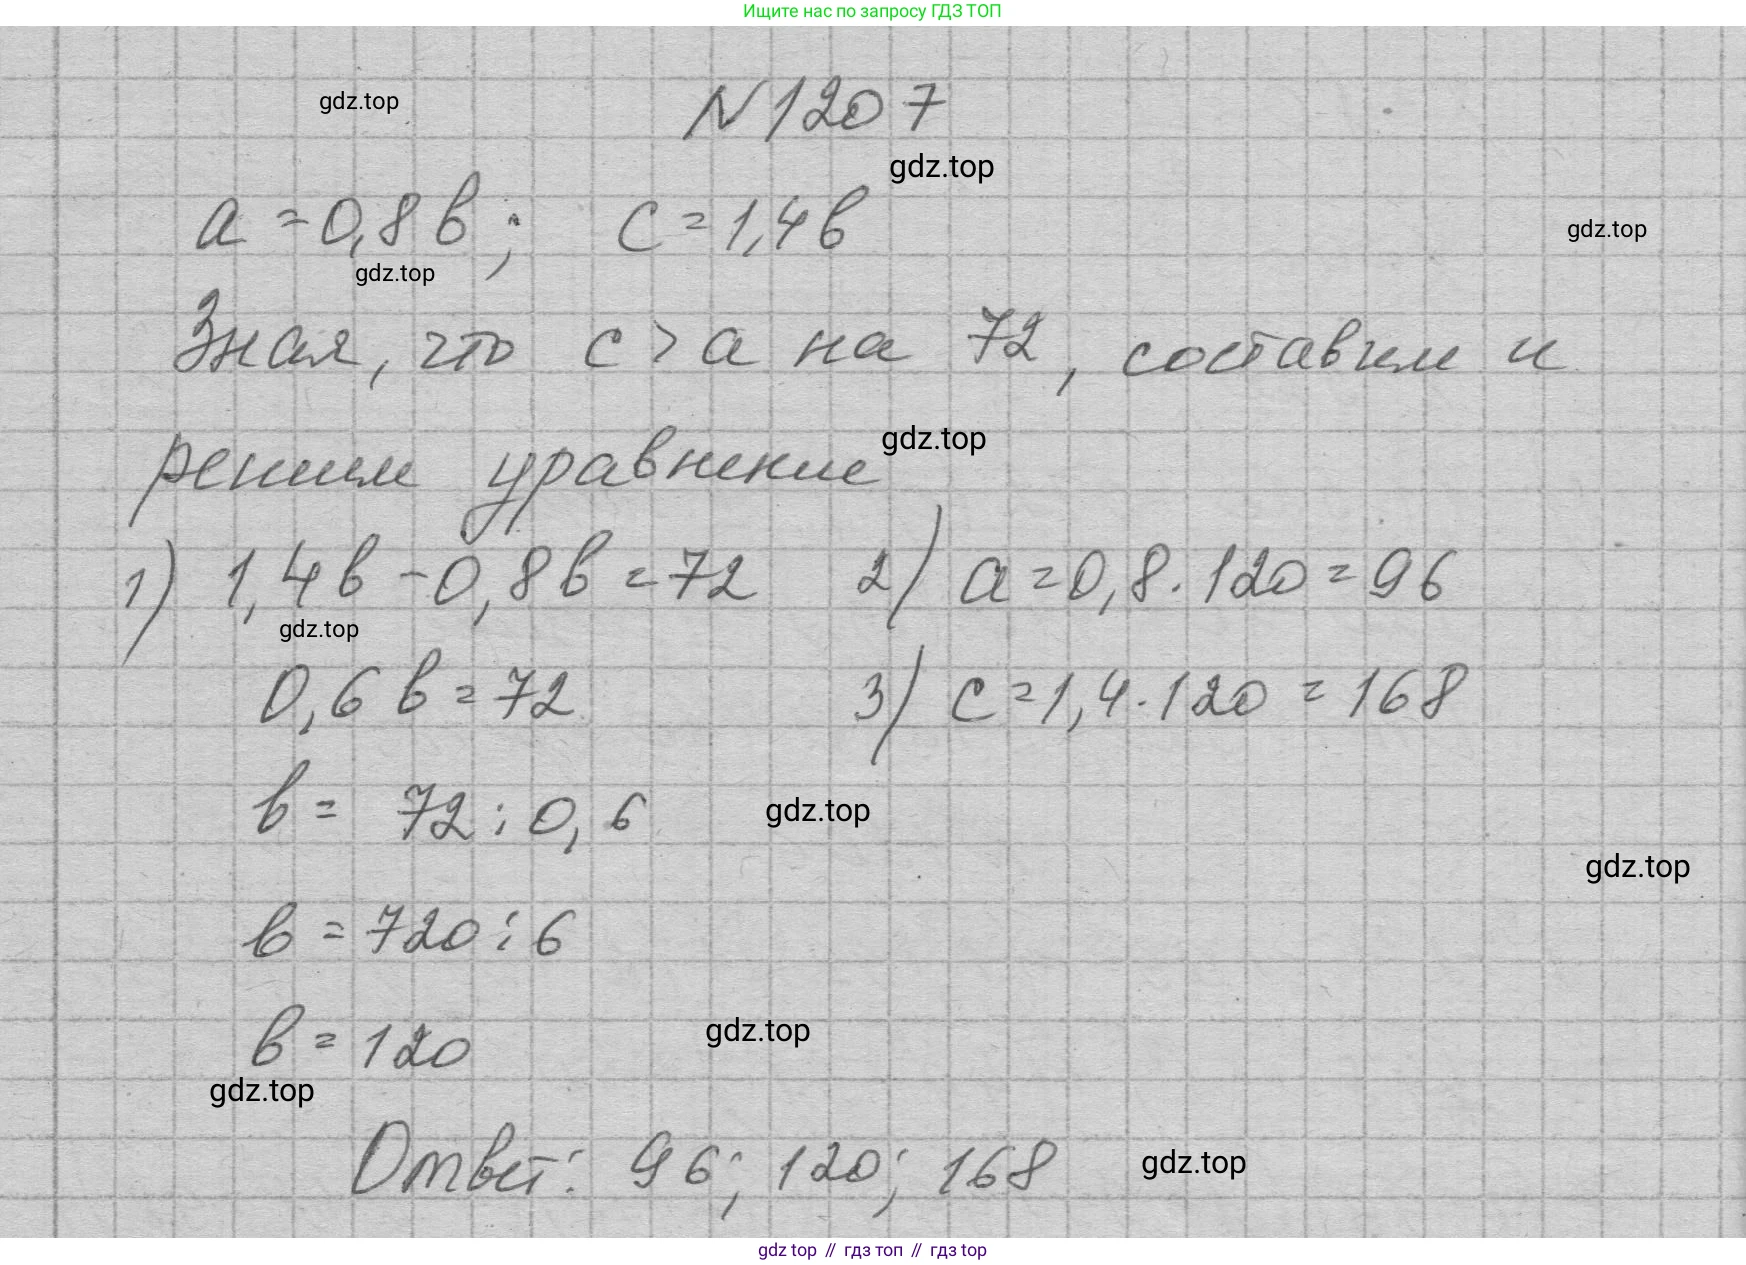 Ищите нас по запросу ГДЗ ТОП
gdz.top
N 1207
gdz.top
a = 0,8 в ; c = 1,4 в
gdz.top
gdz.top
Зная, что c > a на 72, составим и
gdz.top
решим уравнение
1) 1,4 в - 0,8 в = 72 2) a = 0,8 · 120 = 96
gdz.top
0,6 в = 72 3) c = 1,4 · 120 = 168
в = 72 : 0,6
gdz.top
gdz.top
в = 720 : 6
в = 120
gdz.top
gdz.top
Ответ: 96; 120; 168
gdz.top
gdz top // гдз топ // гдз top